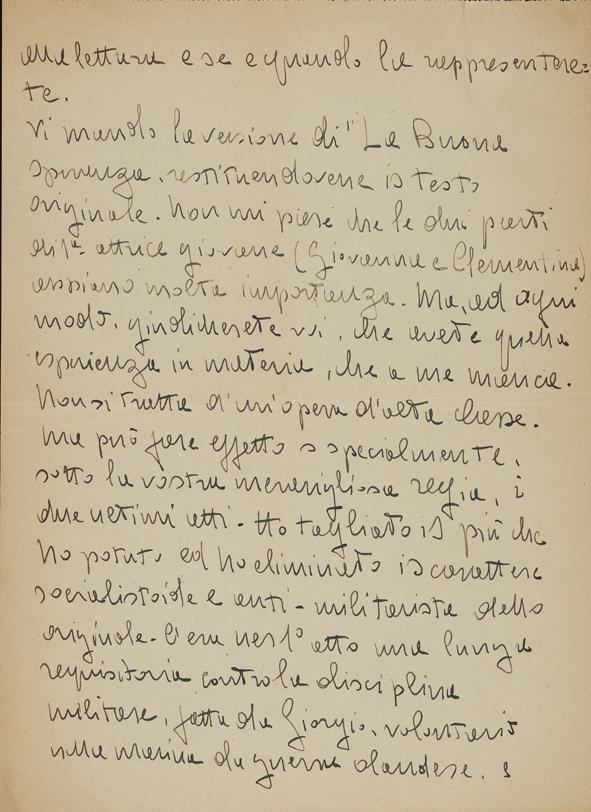 alla lettura e se e quando la rappresentere=
te.
Vi mando la versione di "La Buona
speranza, restituendovene il testo
originale. Non mi pare che le due parti
di 1ª attrice giovane (Giovanna e Clementina)
abbiano molta importanza. Ma, ad ogni
modo, giudicherete voi, che avete quella
esperienza in materia, che a me manca.
Non si tratta d'un'opera d'alta classe.
Ma può fare effetto e specialmente,
sotto la vostra meravigliosa regia, i
due ultimi atti. Ho tagliato il più che
ho potuto ed ho eliminato il carattere
socialistoide e anti-militarista dello
originale. C'era nel 1° atto una lunga
requisitoria contro la disciplina
militare, fatta da Giorgio, volontario
nella marina da guerra olandese.